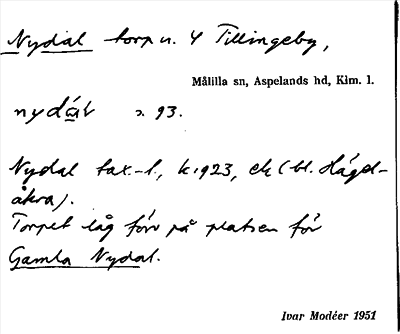 Nydal torp u. 4 Tillingeby,
Målilla sn, Aspelands hd, Klm. l.
nydáv s. 93.
Nydal tax.-l., k 1923, ek (bl. Hägel-
åkra).
Torpet låg förr på platsen för
Gamla Nydal.
Ivar Modéer 1951